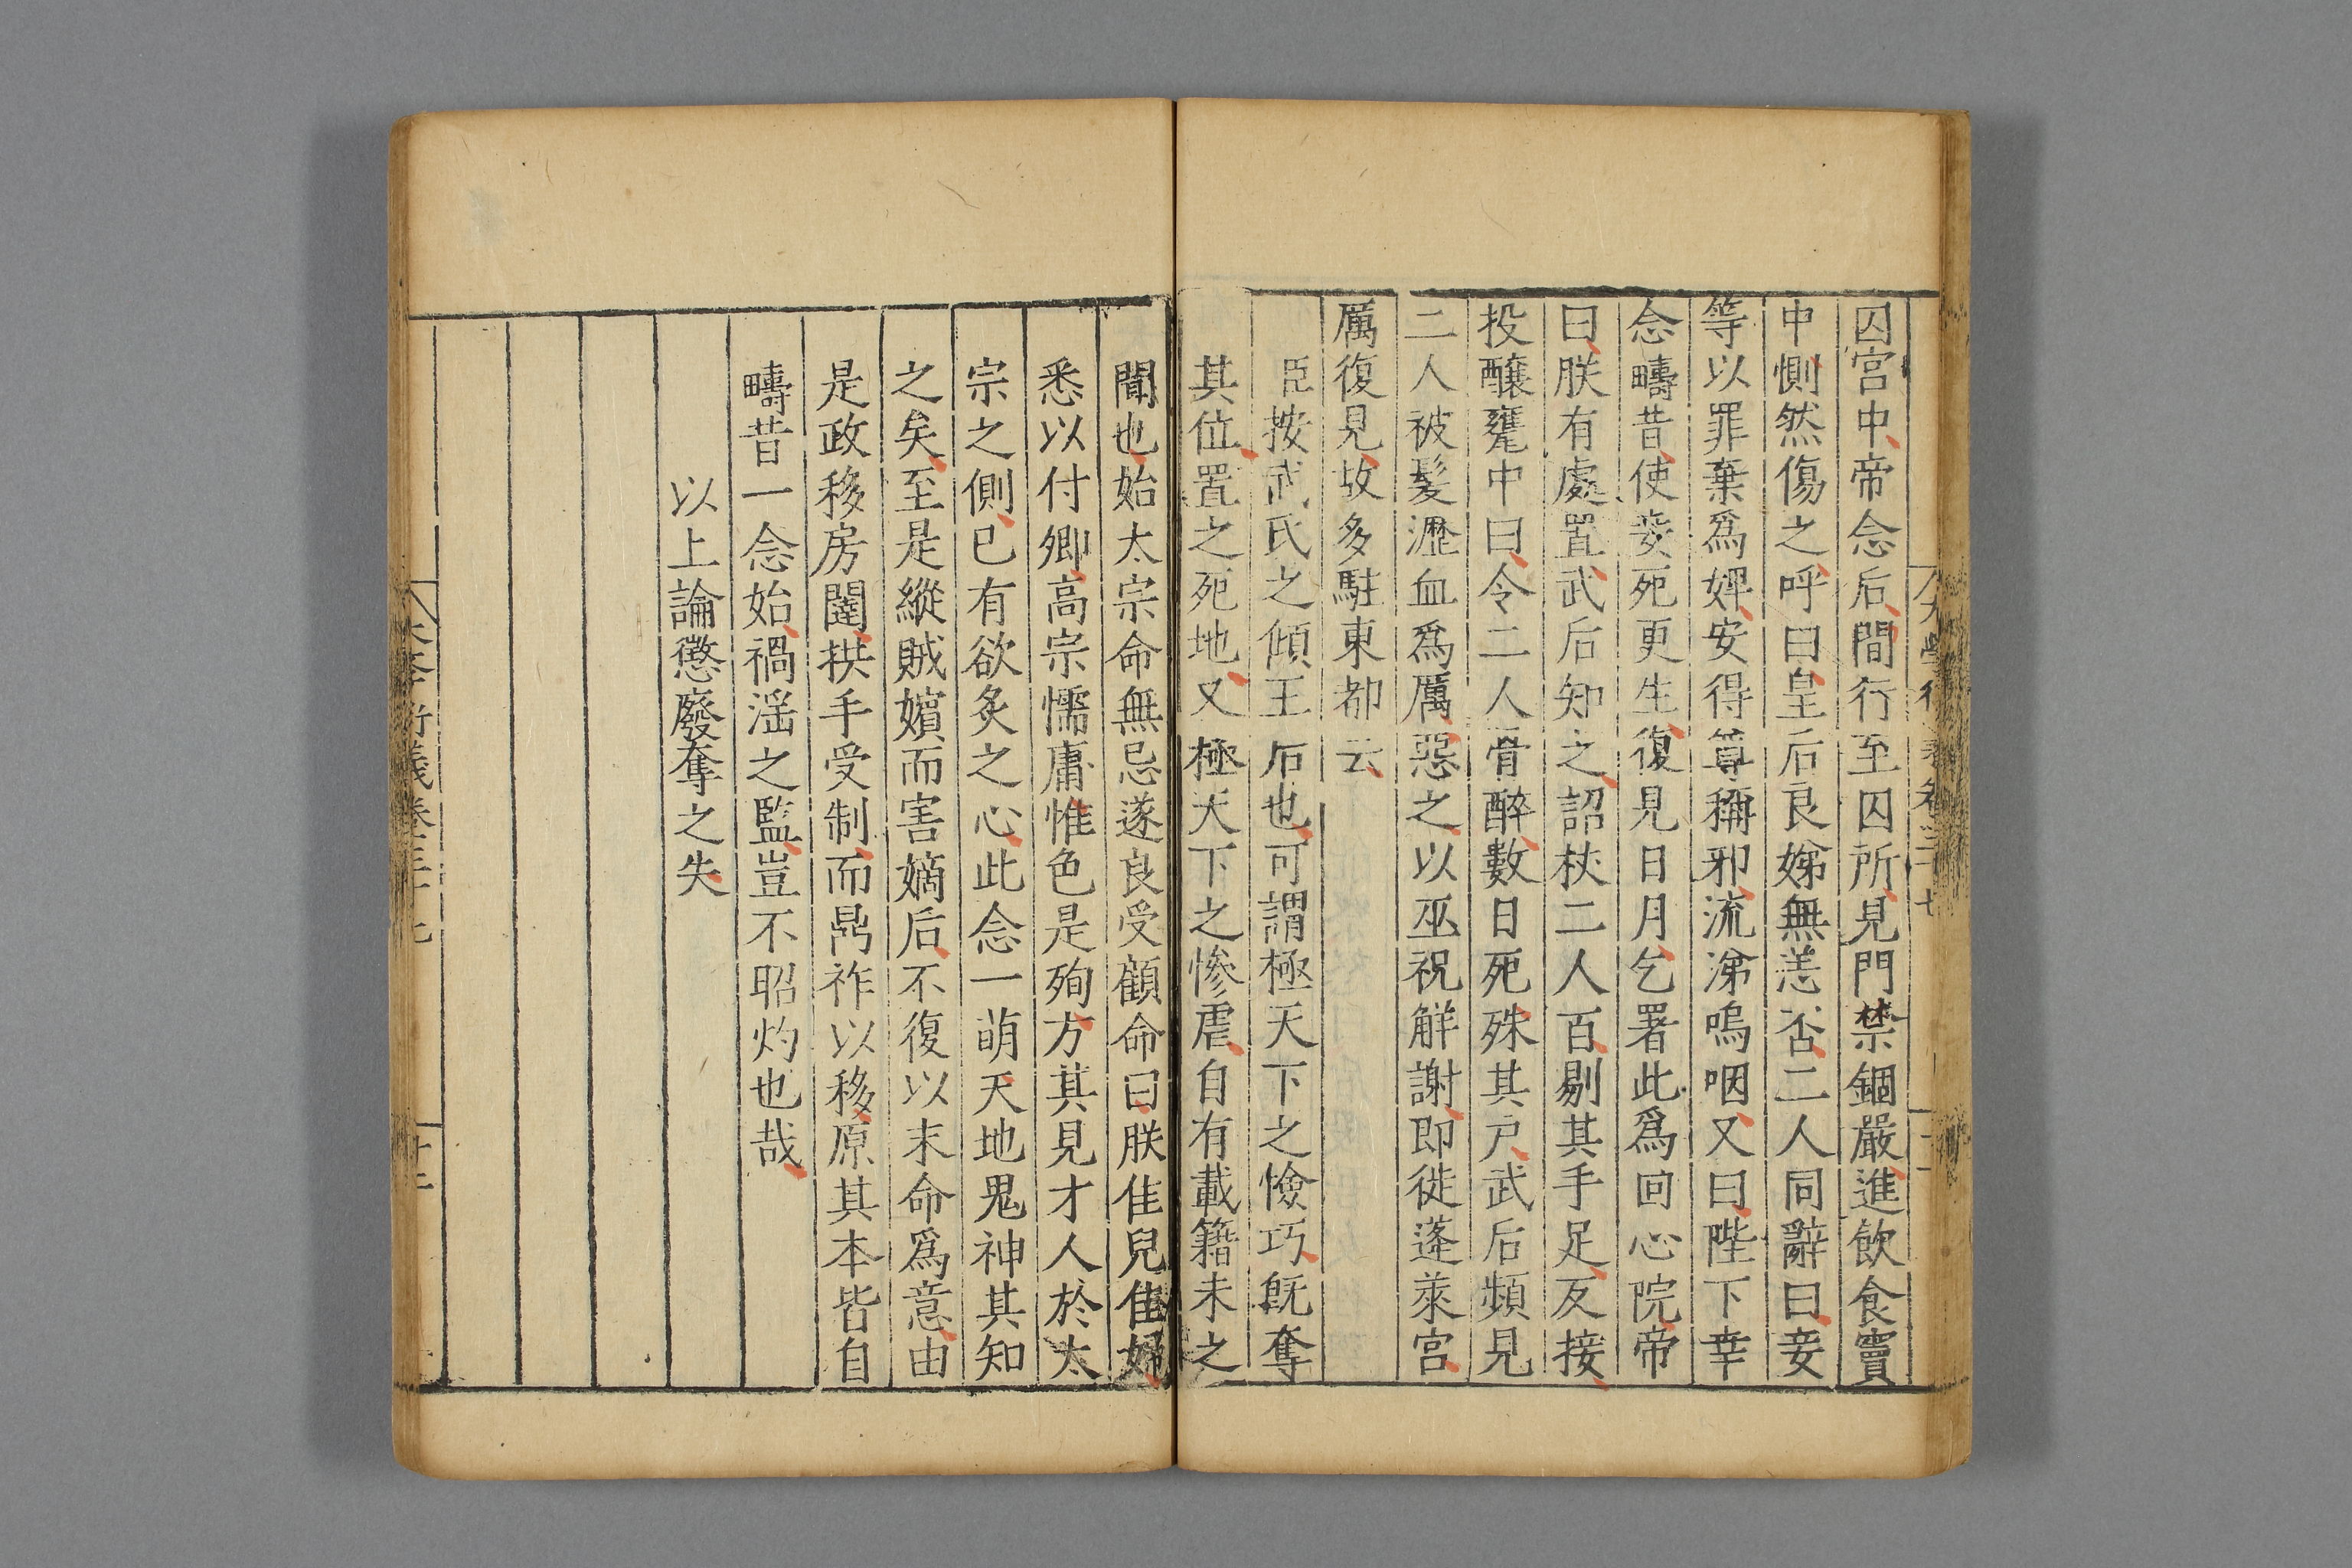 囚宮中帝念后間行至囚所見門禁錮嚴進飲食竇
中惻然傷之呼曰皇后良娣無恙否二人同辭曰妾
等以罪棄爲婢安得尊稱邪流涕嗚咽又曰陛下幸
念疇昔使妾死更生復見日月乞署此爲回心院帝
曰朕有處置武后知之詔杖二人百剔其手足反接
投釀甕中曰令二人骨醉數日死殊其尸武后頻見
二人被髮瀝血爲厲惡之以巫祝觧謝即徙蓬萊宮
厲復見故多駐東都云
臣按武氏之傾王后也可謂極天下之憸巧旣奪
其位置之死地又極天下之慘虐自有載籍未之
聞也始太宗命無忌遂良受顧命曰朕佳兒佳婦
悉以付卿高宗懦庸惟色是殉方其見才人於太
宗之側已有欲炙之心此念一萌天地鬼神其知
之矣至是縱賊嬪而害嫡后不復以末命爲意由
是政移房闥拱手受制而鼎祚以移原其本皆自
疇昔一念始禍淫之監豈不昭灼也哉
以上論懲廢奪之失
大學衍義卷三十七